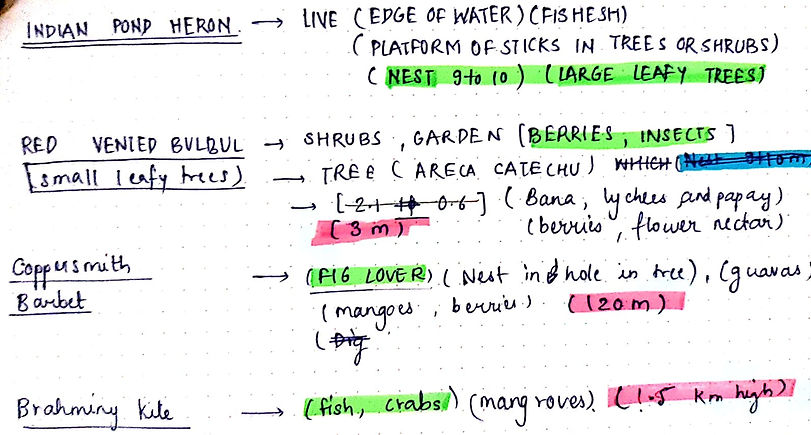 INDIAN POND HERON → LIVE (EDGE OF WATER) (FISHESH)
(PLATFORM OF STICKS IN TREES OR SHRUBS)
(NEST 9 to 10) (LARGE LEAFY TREES)
RED VENTED BULBUL → SHRUBS, GARDEN [BERRIES, INSECTS]
[small leafy trees) → TREE (ARECA CATECHU) WHICH (Nest
→ [2.1 to 0.6] (Bana, lychees and papay)
(3 m) (berries, flower nectar)
Coppersmith → (FIG LOVER) (Nest in hole in tree), (guavas)
Barbet (mangoes, berries) (120 m)
(Dig
Brahminy Kite → (fish, crabs) (mangroves) (1.5 km high)